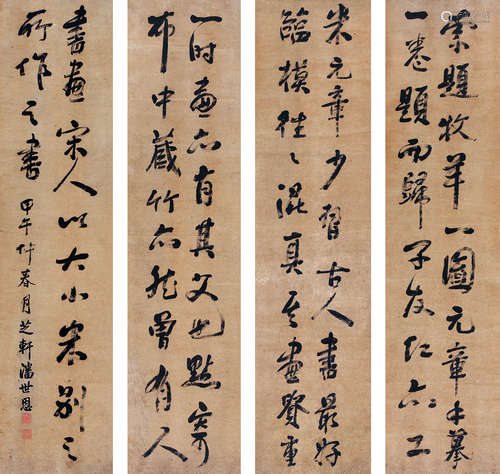 索題牧羊一圖元章手摹
一卷題而歸子友仁亦工
米元章少習古人書最好
臨摸往〻混真畫重
一時畫亦有其父也點
布中藏竹亦然曾有人
書畫宋人以大小別之
所作之書
甲午仲春月芝軒潘世恩